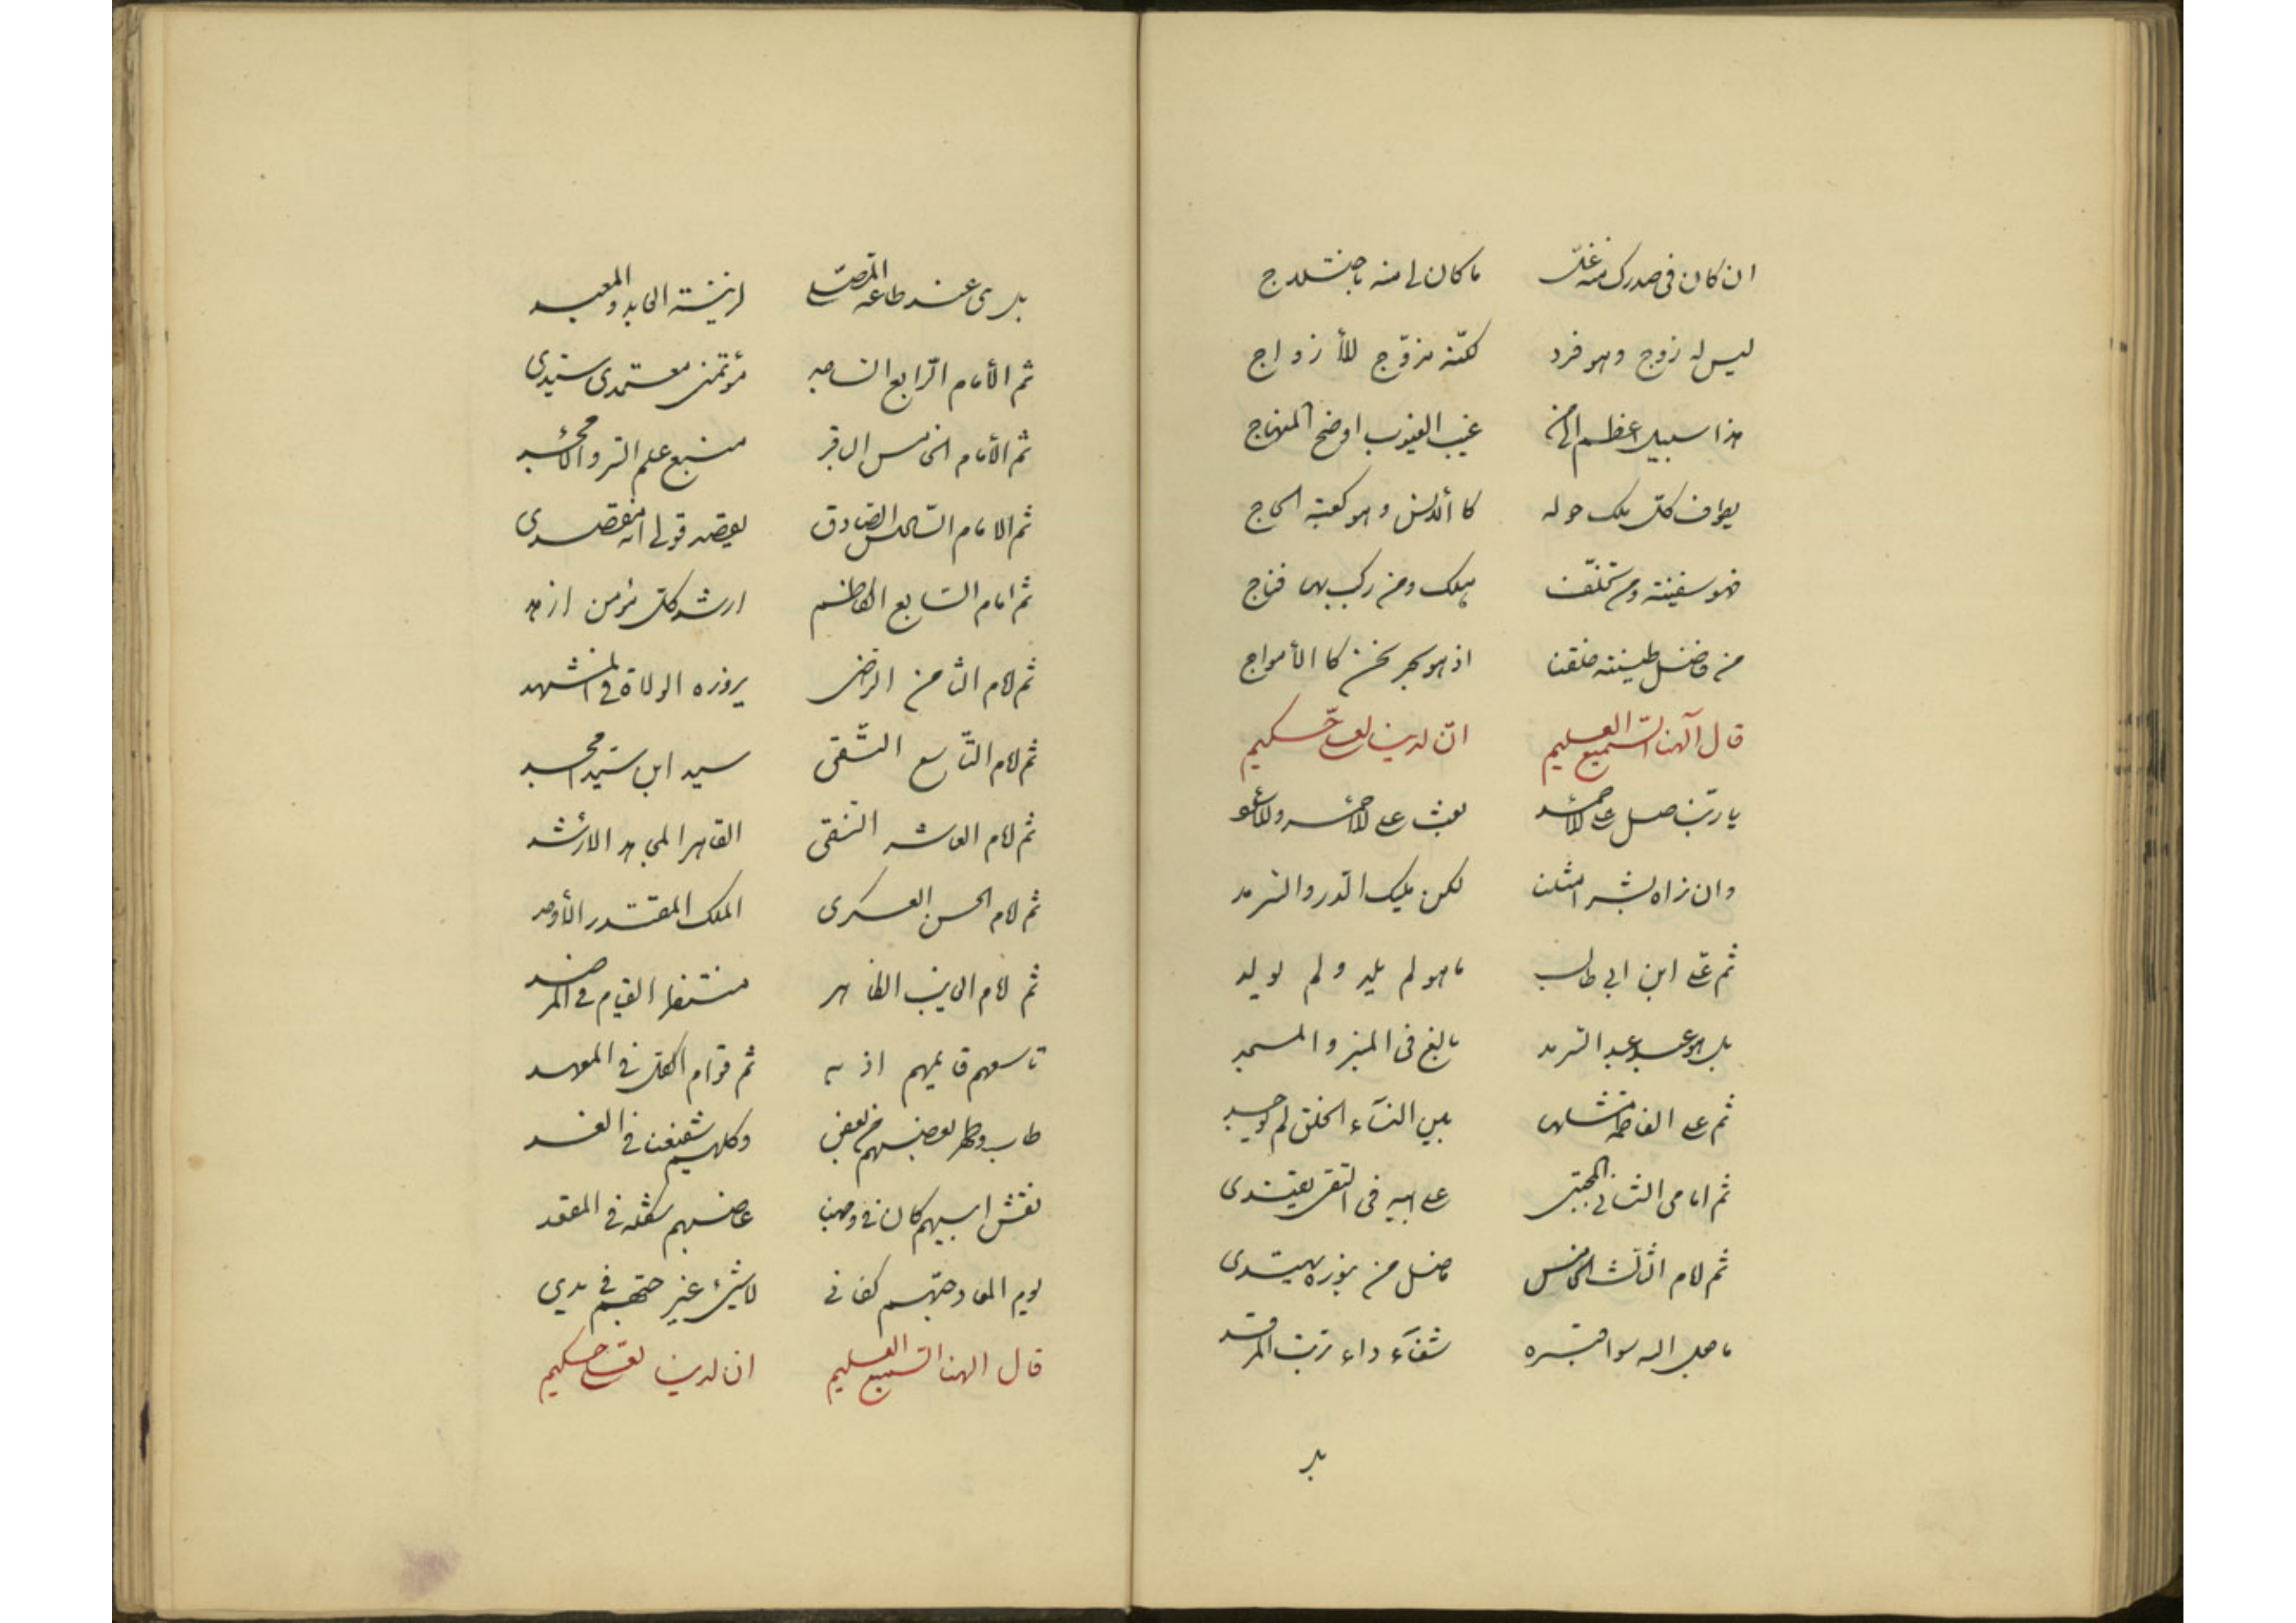 ان كان فى صدرك منه غلّ ما كان لى منه باختلاج
ليس له زوج وهو فرد لكنّه مزوّج للأزواج
هذا سبيل اعظم غيب الغيوب اوضح المنهاج
يطواف كلّ ملك حوله كا وهو كعبة الحاج
فهو سفينة ومن تخلّف هلك ومن ركب بها فناج
من فاضل طينته خلقنا اذ هو بحر نحن كا الأمواج
قال آلهنا السميع العليم انّ لدينا لعلىّ حكيم
يا ربّنا صل على الأحمد
وان نراه بشرا مثلنا لكن مليك الدهر والسّرمد
ثم علىّ ابن ابى طالب ما هو لم يلد ولم يولد
بل هو عبد عبد السّرمد بالغ فى المنبر والمسجد
ثم على الفاطمة بين النسآء الخلق لم يوجد
ثم امامى الثانى المجتبى على ابيه فى التقى يقتدى
ثم لامام الثالث الخامس من نوره يهتدى
شفآء داء تربت المرقد
بل
بل ى عند طاعة لزينة العابد والمعبد
ثم الأمام الرّابع السّاجد مؤتمنى معتمدى سيّدى
ثم الأمام الخامس الباقر منبع علم السّر
ثم الامام السّادس الصّادق قولى انه مقصدى
ثم امام السّابع الكاظم ارشد كلّ مؤمن ازهد
ثم لامام الثامن الرّضى يزوره الولاة فى المشهد
ثم لامام التّاسع التّقى سيد ابن سيّد امجد
ثم لامام العاشر النّقى القاهر المجاهد الارشد
ثم لامام الحسن العسكرى الملك المقتدر الأوحد
ثم لامام الغايب الظاهر منتظر القيام فى
تاسعهم قايمهم اذ به ثم قوام الكلّ فى المعهد
طاب وطهر بعضهم من بعض وكلهم شفيعنا فى الغد
نقش اسيهم كان فى وجهنا غاصبهم فى المقعد
يوم المعاد حبّهم كفانى لا شئ غير حبّهم فى يدي
قال الهنا السّميع العليم ان لدينا لعلىّ حكيم